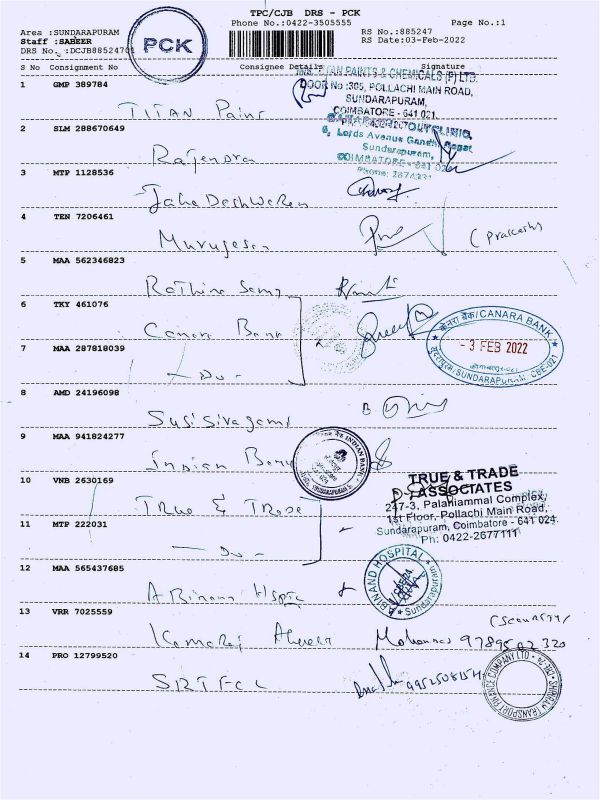 TPC/CJB DRS - PCK
Phone No.:0422-3505555
Page No.:1
Area :SUNDARAPURAM
Staff :SABEER
DRS No. :DCJB88524701
PCK
RS No.:885247
RS Date:03-Feb-2022
S No Consignment No Consignee Details Signature
1 GMP 389784
TITAN Paint
TITAN PAINTS & CHEMICALS (P) LTD.
DOOR No :305, POLLACHI MAIN ROAD,
SUNDARAPURAM,
COIMBATORE - 641 021.
2 SLM 288670649
Rajendra
6, Lords Avenue Gandhi Nagar
Sundarapuram,
COIMBATORE - 641 02
3 MTP 1128536
4 TEN 7206461
Murugesan
(Prakash)
5 MAA 562346823
Rathina Samy
6 TKY 461076
Canara Bank
केनरा बैंक/CANARA BANK
- 3 FEB 2022
SUNDARAPURAM, CBE-021
7 MAA 287818039
- Do -
8 AMD 24196098
9 MAA 941824277
Indian Bank
INDIAN BANK
10 VNB 2630169
True & Trade
TRUE & TRADE
ASSOCIATES
247-3, Palaniammal Complex,
1st Floor, Pollachi Main Road,
Sundarapuram, Coimbatore - 641 024.
Ph: 0422-2677111
11 MTP 222031
- Do -
12 MAA 565437685
ABINAND HOSPITAL
Sundarapuram
13 VRR 7025559
Kamaraj
(Security)
14 PRO 12799520
SRTFCL
SHRIRAM TRANSPORT FINANCE COMPANY LTD